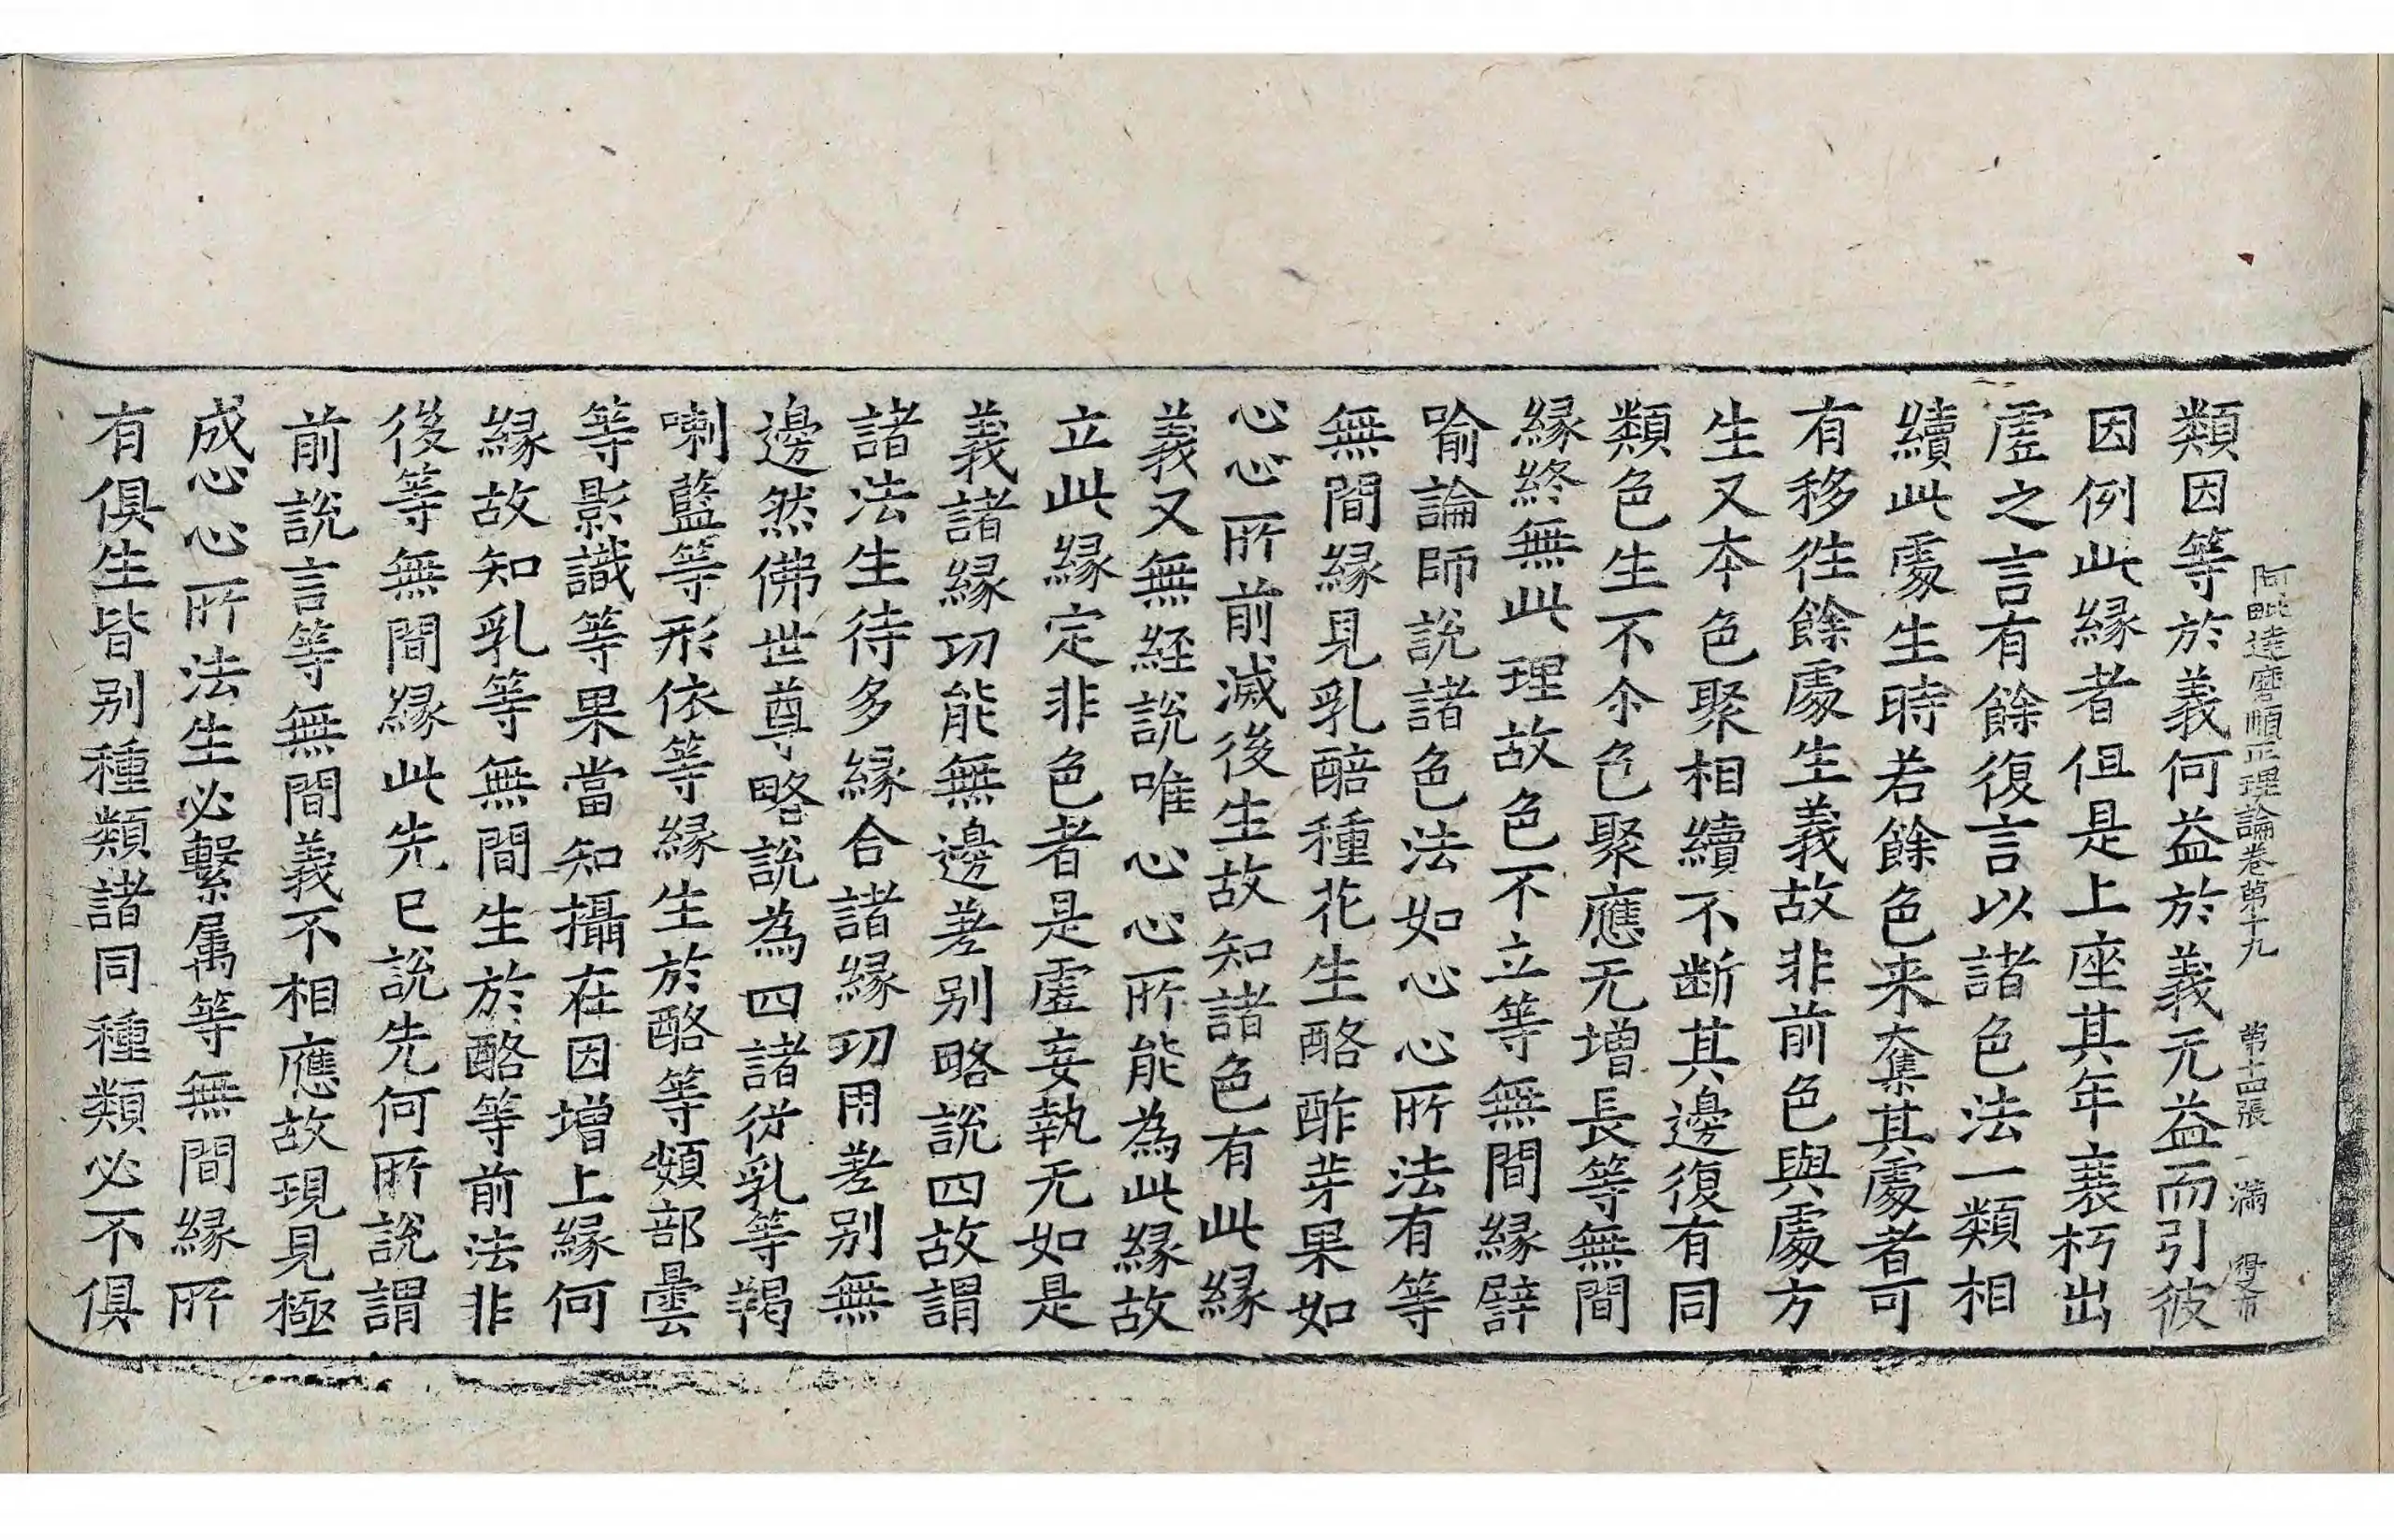 阿毗達磨順正理論卷第十九　第十四張　滿
類因等於義何益於義无益而引彼
因例此緣者但是上座其年衰朽出
虛之言有餘復言以諸色法一類相
續此處生時若餘色来奪其處者可
有移往餘處生義故非前色與處方
生又本色聚相續不断其邊復有同
類色生不尒色聚應无增長等無間
緣終無此理故色不立等無間緣譬
喻論師說諸色法如心心所法有等
無間緣見乳醅種花生酪酢芽果如
心心所前滅後生故知諸色有此緣
義又無経說唯心心所能為此緣故
立此緣定非色者是虛妄執无如是
義諸緣功能無邊差别略說四故謂
諸法生待多緣合諸緣功用差别無
邊然佛世尊略說為四諸從乳等羯
喇藍等形依等緣生於酪等頞部曇
等影識等果當知攝在因增上緣何
緣故知乳等無間生於酪等前法非
後等無間緣此先已說先何所說謂
前說言等無間義不相應故現見極
成心心所法生必繫属等無間緣所
有俱生皆别種類諸同種類必不俱